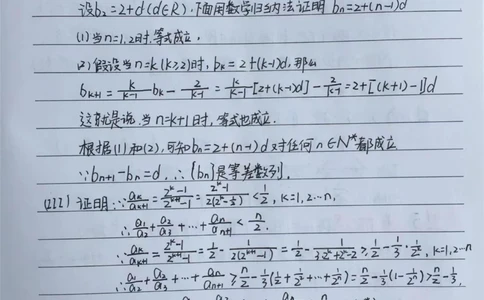 设b₂=2+d(d∈R),下面用数学归纳法证明 bₙ=2+(n-1)d
(1)当n=1,2时,等式成立.
(2)假设当n=k(k≥2)时, bₖ=2+(k-1)d,那么
bₖ₊₁ = k/(k-1) bₖ - 2/(k-1) = k/(k-1)[2+(k-1)d] - 2/(k-1) = 2+[(k+1)-1]d
这就是说,当n=k+1时,等式也成立.
根据(1)和(2),可知bₙ=2+(n-1)d对任何n∈N*都成立
∵bₙ₊₁-bₙ=d, ∴{bₙ}是等差数列.
(III)证明:∵aₖ/aₖ₊₁ = (2ᵏ-1)/(2ᵏ⁺¹-1) = (2ᵏ-1)/(2(2ᵏ-½)) < 1/2, k=1,2…n,
∴a₁/a₂+a₂/a₃+…+aₙ/aₙ₊₁ < n/2.
∵aₖ/aₖ₊₁ = (2ᵏ-1)/(2ᵏ⁺¹-1) = 1/2 - 1/(2(2ᵏ⁺¹-1)) = 1/2 - 1/(3·2ᵏ+2ᵏ-2) ≥ 1/2 - 1/3·1/2ᵏ, k=1,2…n
∴a₁/a₂+a₂/a₃+…+aₙ/aₙ₊₁ ≥ n/2 - 1/3(1/2+1/2²+…+1/2ⁿ) = n/2 - 1/3(1-1/2ⁿ) > n/2 - 1/3,